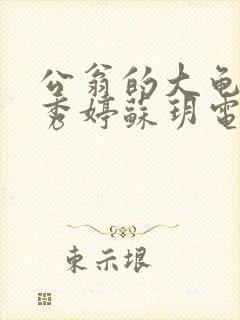 公翁的大龟
秀婷蘇玥電
東示垠